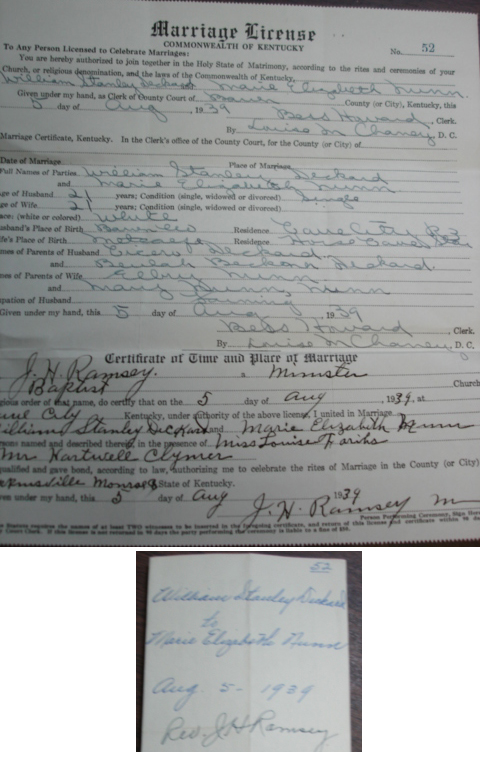 Marriage License
COMMONWEALTH OF KENTUCKY
No. 52
To Any Person Licensed to Celebrate Marriages:
You are hereby authorized to join together in the Holy State of Matrimony, according to the rites and ceremonies of your
Church, or religious denomination, and the laws of the Commonwealth of Kentucky,
William Stanley Deckard Marie Elizabeth Nunn
Given under my hand, as Clerk of County Court of Barren County (or City), Kentucky, this
5 day of Aug, 1939 Bess Howard, Clerk.
By Louise M Chaney, D. C.
Marriage Certificate, Kentucky. In the Clerk's office of the County Court, for the County (or City) of
Date of Marriage Place of Marriage
Full Names of Parties William Stanley Deckard
and Marie Elizabeth Nunn
ge of Husband 21 years; Condition (single, widowed or divorced) Single
ge of Wife 21 years; Condition (single, widowed or divorced)
ace: (white or colored) White
usband's Place of Birth Barren Co Residence Cave City R3
ife's Place of Birth Metcalfe Residence Horse Cave
mes of Parents of Husband Cicero Deckard
and Beulah Deckard
mes of Parents of Wife Nunn
and Mary Nunn
upation of Husband Farming
Given under my hand, this 5 day of Aug, 1939
Bess Howard, Clerk.
By Louise M Chaney, D. C.
Certificate of Time and Place of Marriage
J. H. Ramsey. a Minister
Baptist Church
gious order of that, do certify that on the 5 day of Aug, 1939, at
City Kentucky, under authority of the above license, I united in Marriage
illiam Stanley Deckard and Marie Elizabeth Nunn
rsons named and described therein, in the presence of Miss Louise
Mr Hartwell Clymer
qualified and gave bond, according to law, authorizing me to celebrate the rites of Marriage in the County (or City)
Monroe State of Kentucky.
ven under my hand, this 5 day of Aug 1939
J. H. Ramsey M
Person Performing Ceremony, Sign Here
52
William Stanley Deckard
to
Marie Elizabeth Nunn
Aug. 5 - 1939
Rev. J H Ramsey